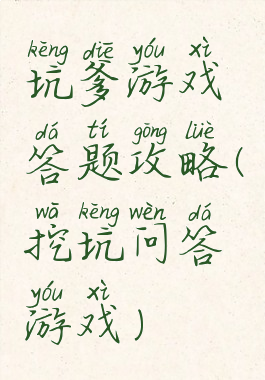 kēng diē yóu xì
坑爹游戏
dá tí gōng lüè
答题攻略(
wā kēng wèn dá
挖坑问答
yóu xì
游戏)